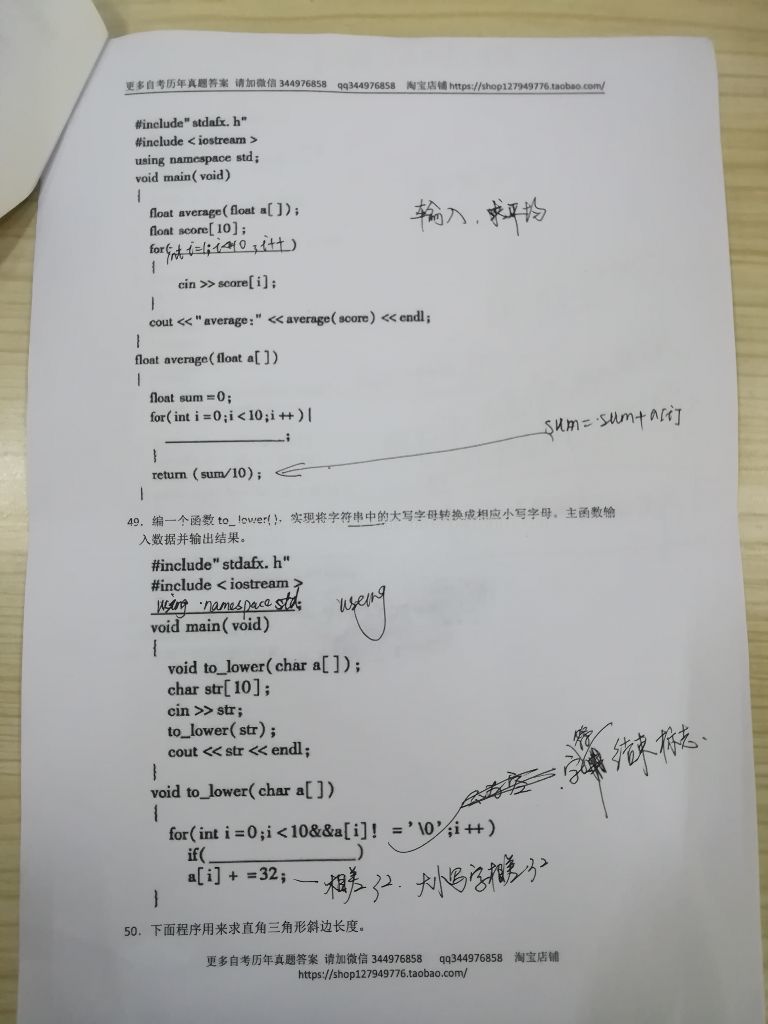 更多自考历年真题答案 请加微信 344976858 qq344976858 淘宝店铺 https://shop127949776.taobao.com/
#include"stdafx.h"
#include <iostream>
using namespace std;
void main(void)
{
float average(float a[]);
float score[10];
for(int i=1;i<10;i++)
输入,求平均
{
cin >> score[i];
}
cout << "average:" << average(score) << endl;
}
float average(float a[])
{
float sum = 0;
for(int i = 0;i < 10;i ++){
____;
sum=sum+a[i]
}
return (sum/10);
}
49. 编一个函数 to_lower(),实现将字符串中的大写字母转换成相应小写字母。主函数输
入数据并输出结果。
#include"stdafx.h"
#include <iostream>
using namespace std;
useing
void main(void)
{
void to_lower(char a[]);
char str[10];
cin >> str;
to_lower(str);
cout << str << endl;
}
void to_lower(char a[])
字符 结束标志.
{
for(int i = 0;i < 10&&a[i]! = '\0';i ++)
if(____)
a[i] + = 32;
相差32. 大小写字相差32
}
50. 下面程序用来求直角三角形斜边长度。
更多自考历年真题答案 请加微信 344976858 qq344976858 淘宝店铺
https://shop127949776.taobao.com/